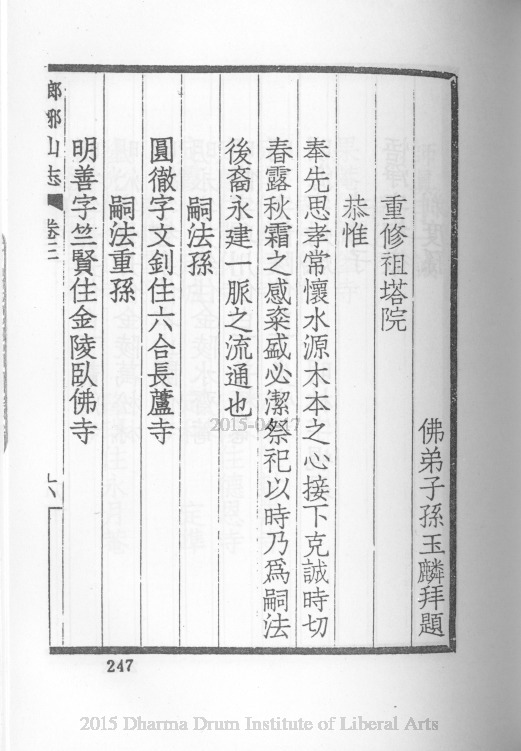 佛弟子孫玉麟拜題
重修祖塔院
恭惟
奉先思孝常懷水源木本之心接下克誠時切
春露秋霜之感粢盛必潔祭祀以時乃爲嗣法
後裔永建一脈之流通也
嗣法孫
圓徹字文釗住六合長蘆寺
嗣法重孫
明善字竺賢住金陵臥佛寺
郎邪山志 卷三
247
2015 Dharma Drum Institute of Liberal Arts